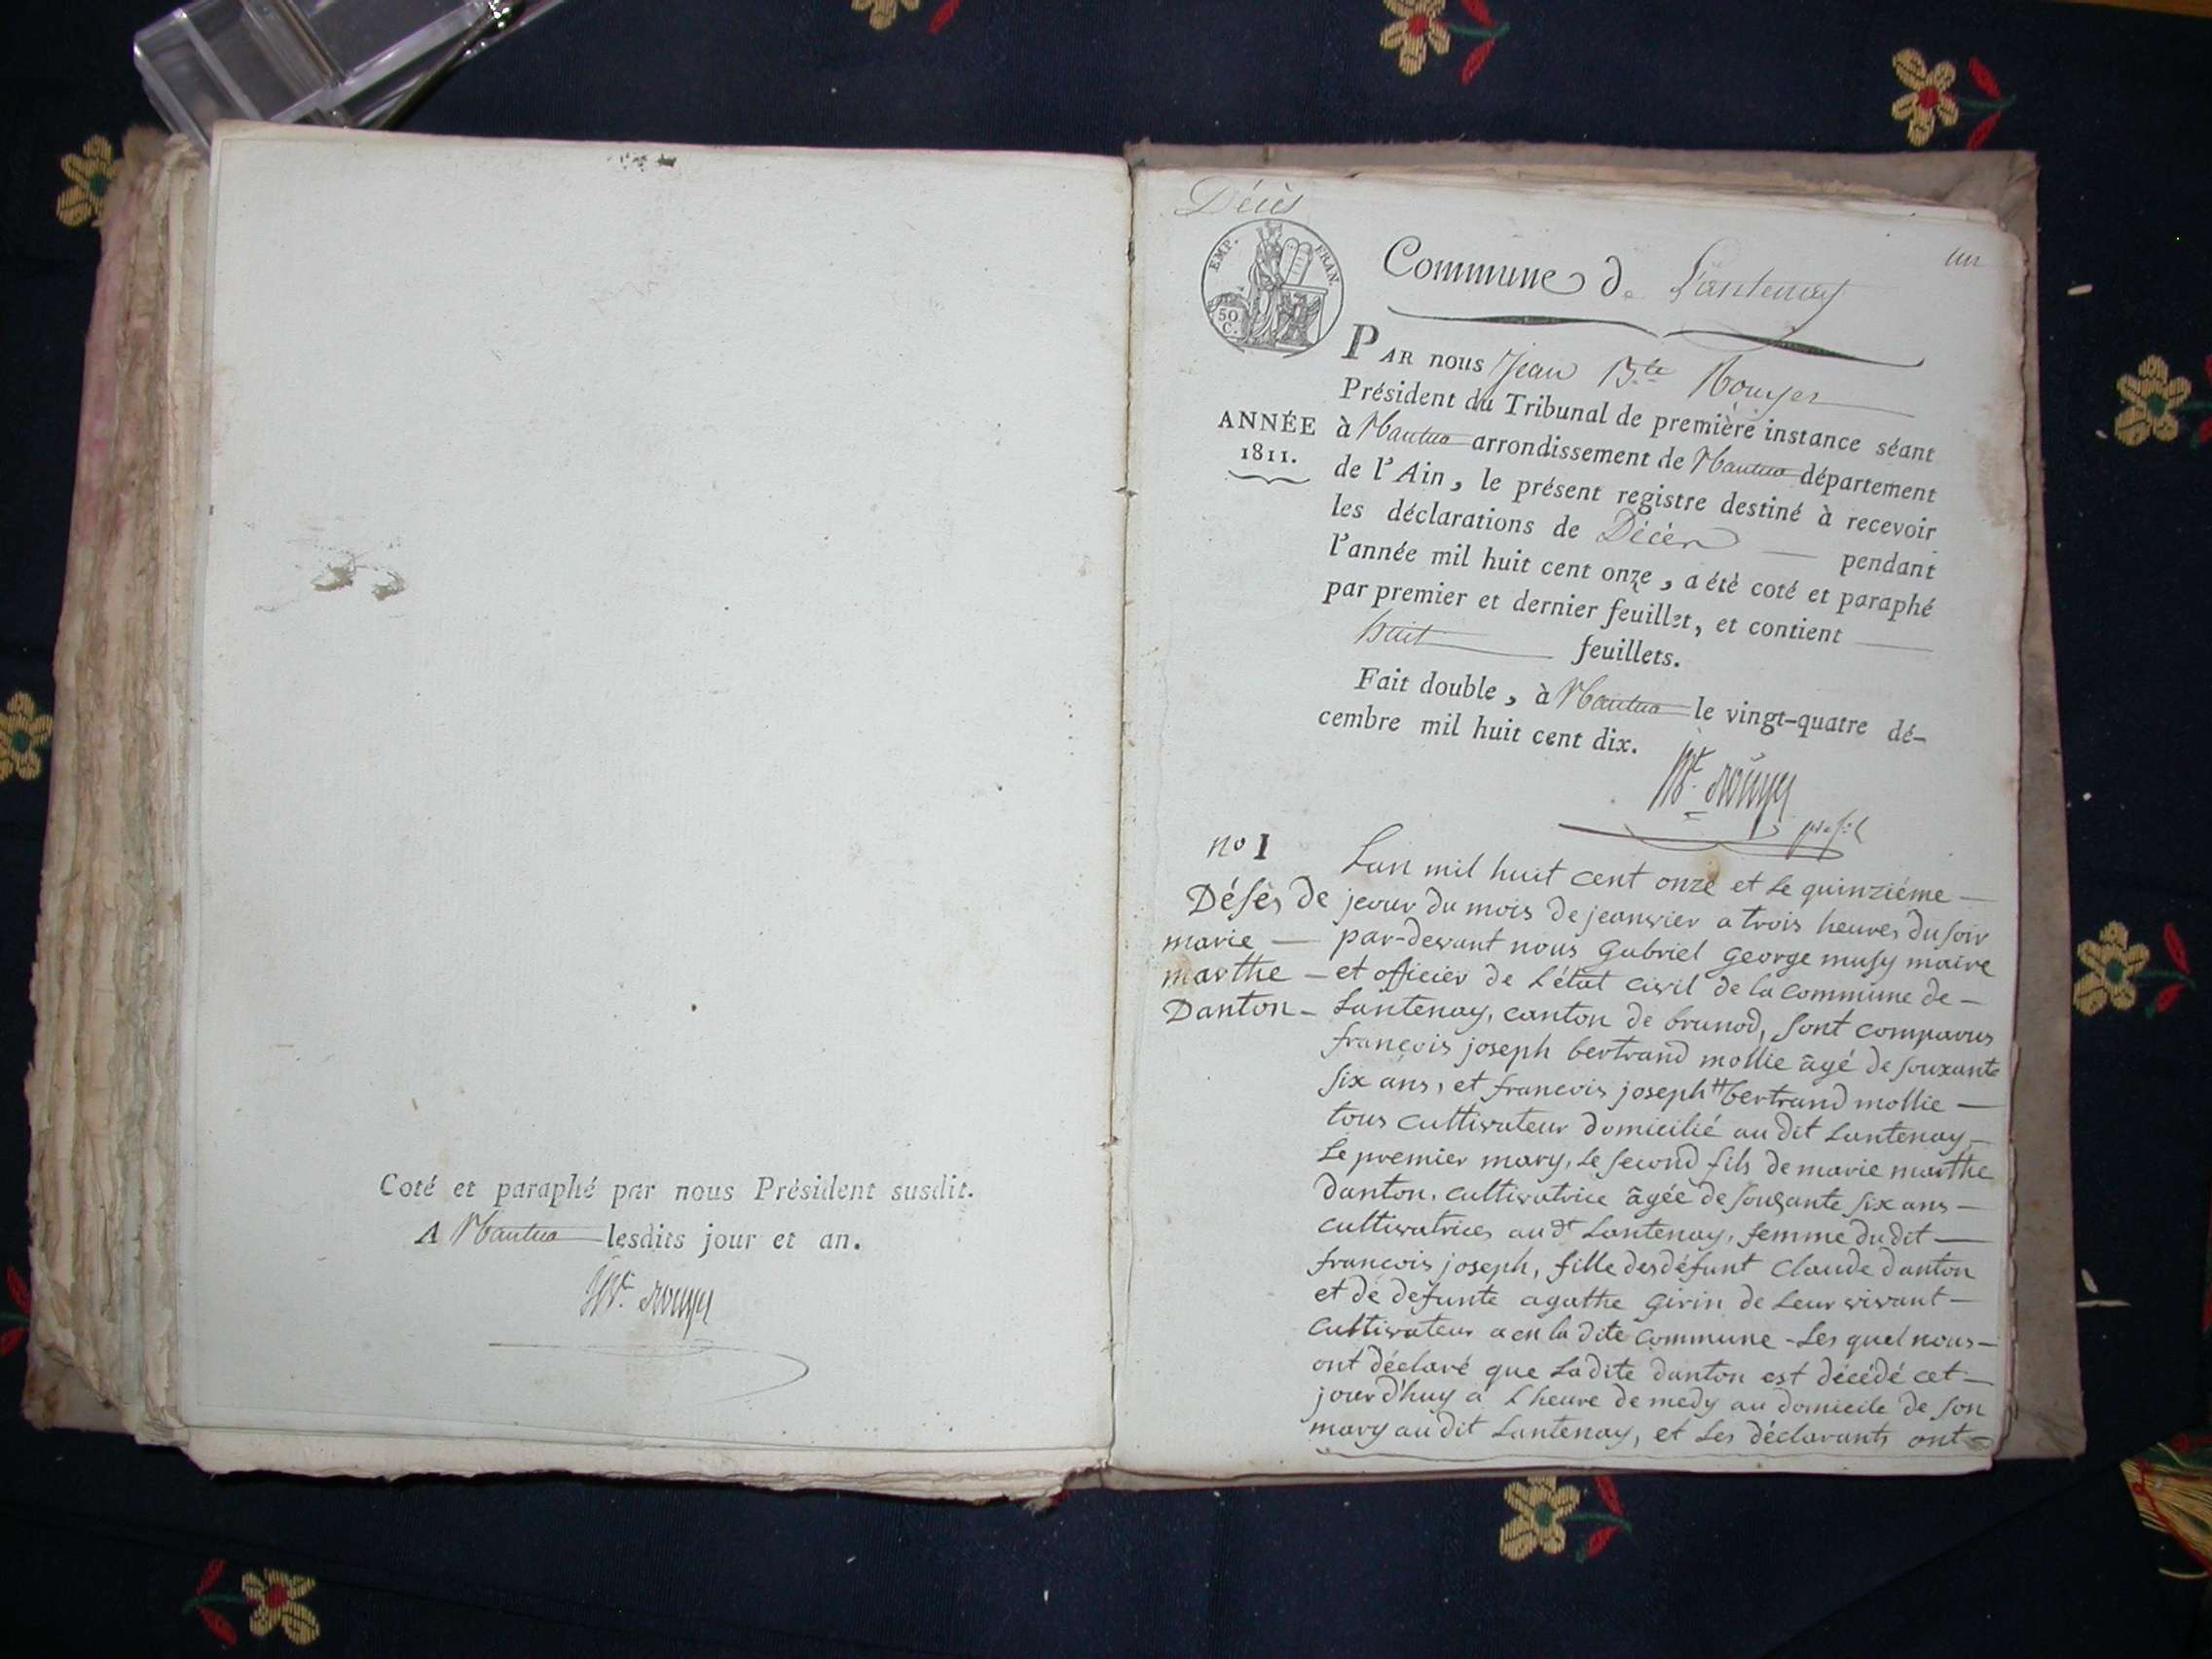 Coté et paraphé par nous Président susdit.
A Nantua lesdits jour et an.
Décès
un
EMP. FRAN.
50 C.
Commune de Lantenay
PAR nous Jean Bte Rouyer
Président du Tribunal de première instance séant
ANNÉE
1811.
à Nantua arrondissement de Nantua département
de l'Ain, le présent registre destiné à recevoir
les déclarations de Décès pendant
l'année mil huit cent onze, a été coté et paraphé
par premier et dernier feuillet, et contient
huit feuillets.
Fait double, à Nantua le vingt-quatre dé-
cembre mil huit cent dix.
no 1
Désès de
marie
marthe
Danton
Lan mil huit cent onze et Le quinziéme
jeour du mois de jeanvier a trois heures du soir
par-devant nous gabriel george musy maire
et officier de L'état civil de la commune de
Lantenay, canton de brunod, sont comparus
françois joseph bertrand mollie âgé de souxante
six ans, et francois joseph bertrand mollie
tous cultivateur domicilié au dit Lantenay
Le premier mary, Le second fils de marie marthe
danton, cultivatrice âgée de souxante six ans
cultivatrices au dt Lantenay, femme du dit
francois joseph, fille des défunt Claude danton
et de defunte agathe girin de Leur vivant
cultivateur a en la dite commune - Les quel nous
ont déclaré que Ladite danton est décédé cet
jourd'huy a Lheure de medy au domicile de son
mary au dit Lantenay, et Les déclarants ont